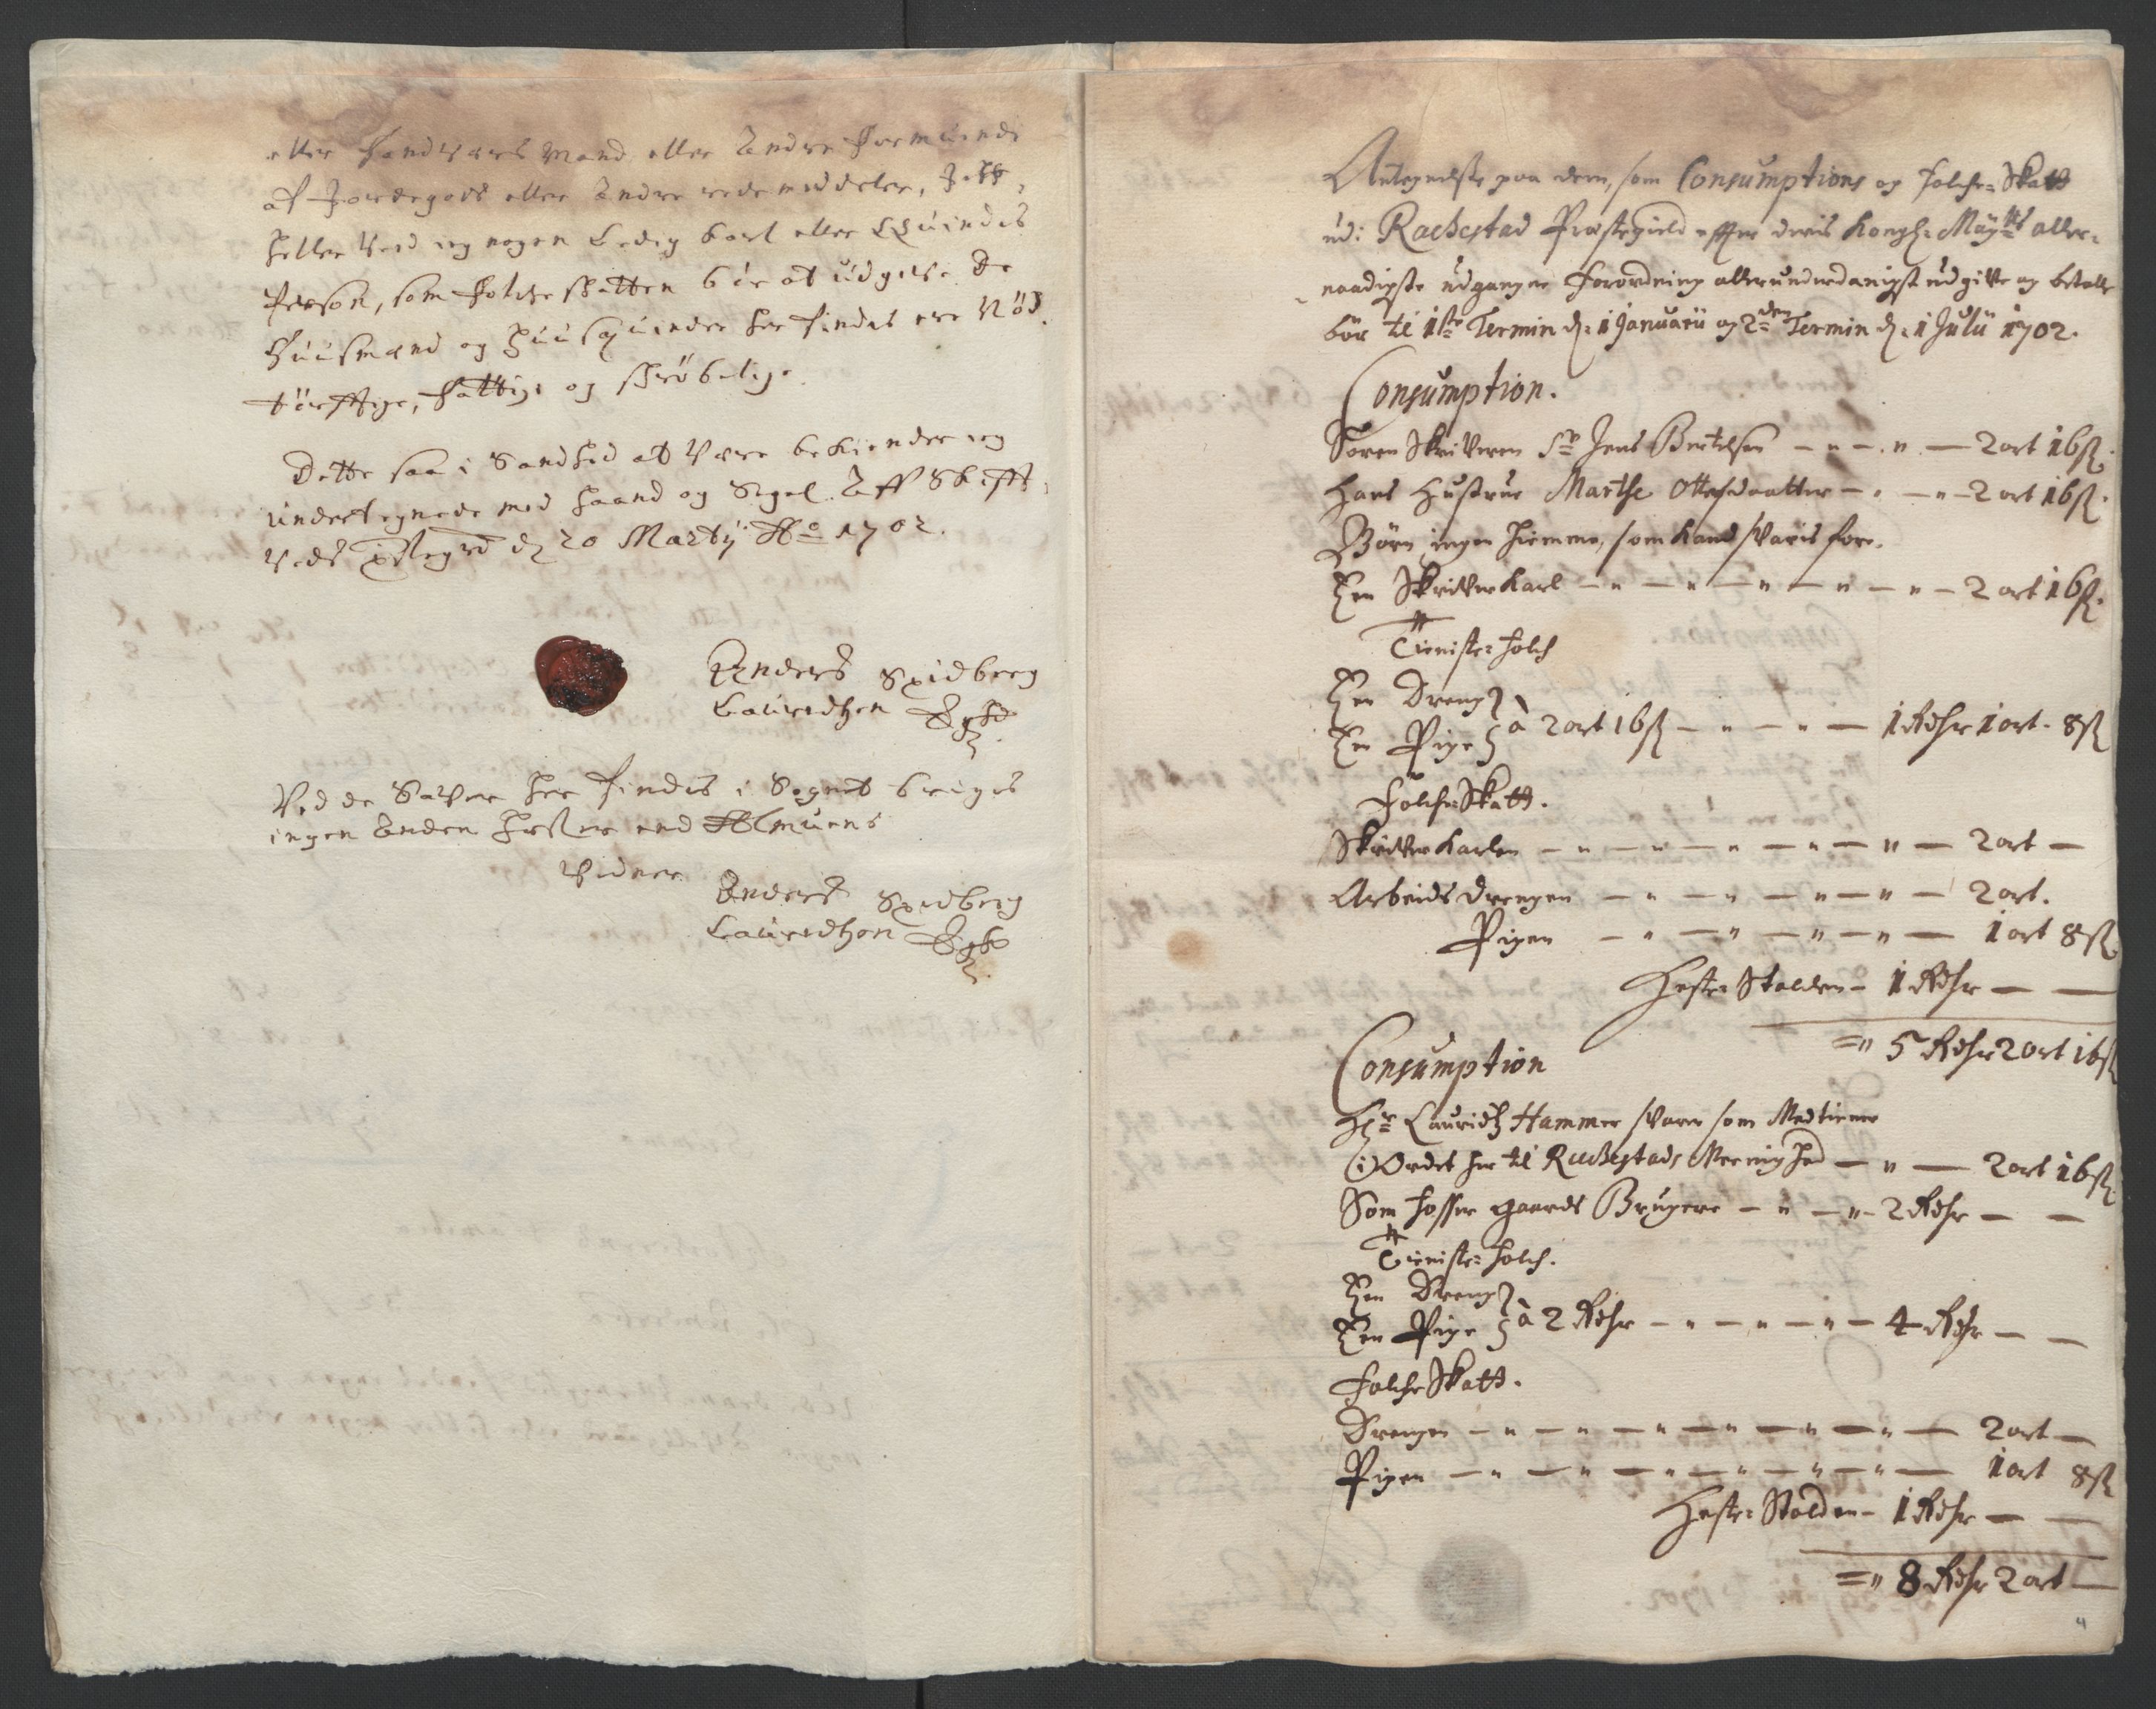 eller Handtvercks Mand eller Andre Formuende
af Jordegods eller Andre rede middeler, Jcke
heller Veed ieg nogen Ledig karl eller Qvindis
Person, som Folcke skatten bör at udgifve. De
Huusmænd og Huusqvinder her findis ere Nöd
törfftige, fattige og skröbelige.
Dette saa i Sandhed at Være bekiender ieg
undertegnede med haand og Segel. Aff Skiptt
vedt Præstegrd d 20 Martij Ao 1702.
Anders Spidberg
Lauridtzen
Ved de Sauger her findis i Sognet brugis
ingen Anden Hester end Almuens
Vidner
Anders Spidberg
Lauridtzon
Antegnelse paa dem, som Consumptions og Folche-Skatt
udi Rachestad Præstegield effter deris Kongl: Mayts aller-
naadigste udgangne Forordning allerunderdanigst udgifve og betalle
bör til 1ste Termin d: 1 Januarii og 2den Termin d: 1 Julii 1702.
Consumption.
Soren Skrifveren Sr Jens Bertelsen — " — " — 2 ort 16 s.
Hans Hustrue Marthe Ottesdaatter — " — " — 2 ort 16 s.
Börn ingen hiemme, som kand svaris fore.
Een Skrifver Karl — " — " — " — " — " — 2 ort 16 s.
Tieniste-Folch
Een Dreng
Een Pige } à 2 ort 16 s — " — " — 1 Rdhr 1 ort 8 s
Folche-Skatt.
Skrifver Karlen — " — " — " — " — " — 2 ort —
Arbeids Drengen — " — " — " — " — 2 ort.
Pigen — " — " — " — " — 1 ort 8 s.
Heste-Stalden — 1 Rdhr — —
=" 5 Rdhr 2 ort 16 s
Consumption
Hr Lauridtz Hammer svarer som Medtiener
i Ordet her til Rachestads Meenighed — " — 2 ort 16 s.
Som Fosser gaards Brugere — " — " — 2 Rdhr — —
Tieniste-Folch.
Een Dreng
Een Pige } à 2 Rdhr — " — " — " — 4 Rdhr — —
Folche Skatt.
Drengen — " — " — " — " — " — " — 2 ort —
Pigen — " — " — " — " — " — " — 1 ort 8 s
Heste-Stalden — 1 Rdhr — —
=" 8 Rdhr 2 ort —
4